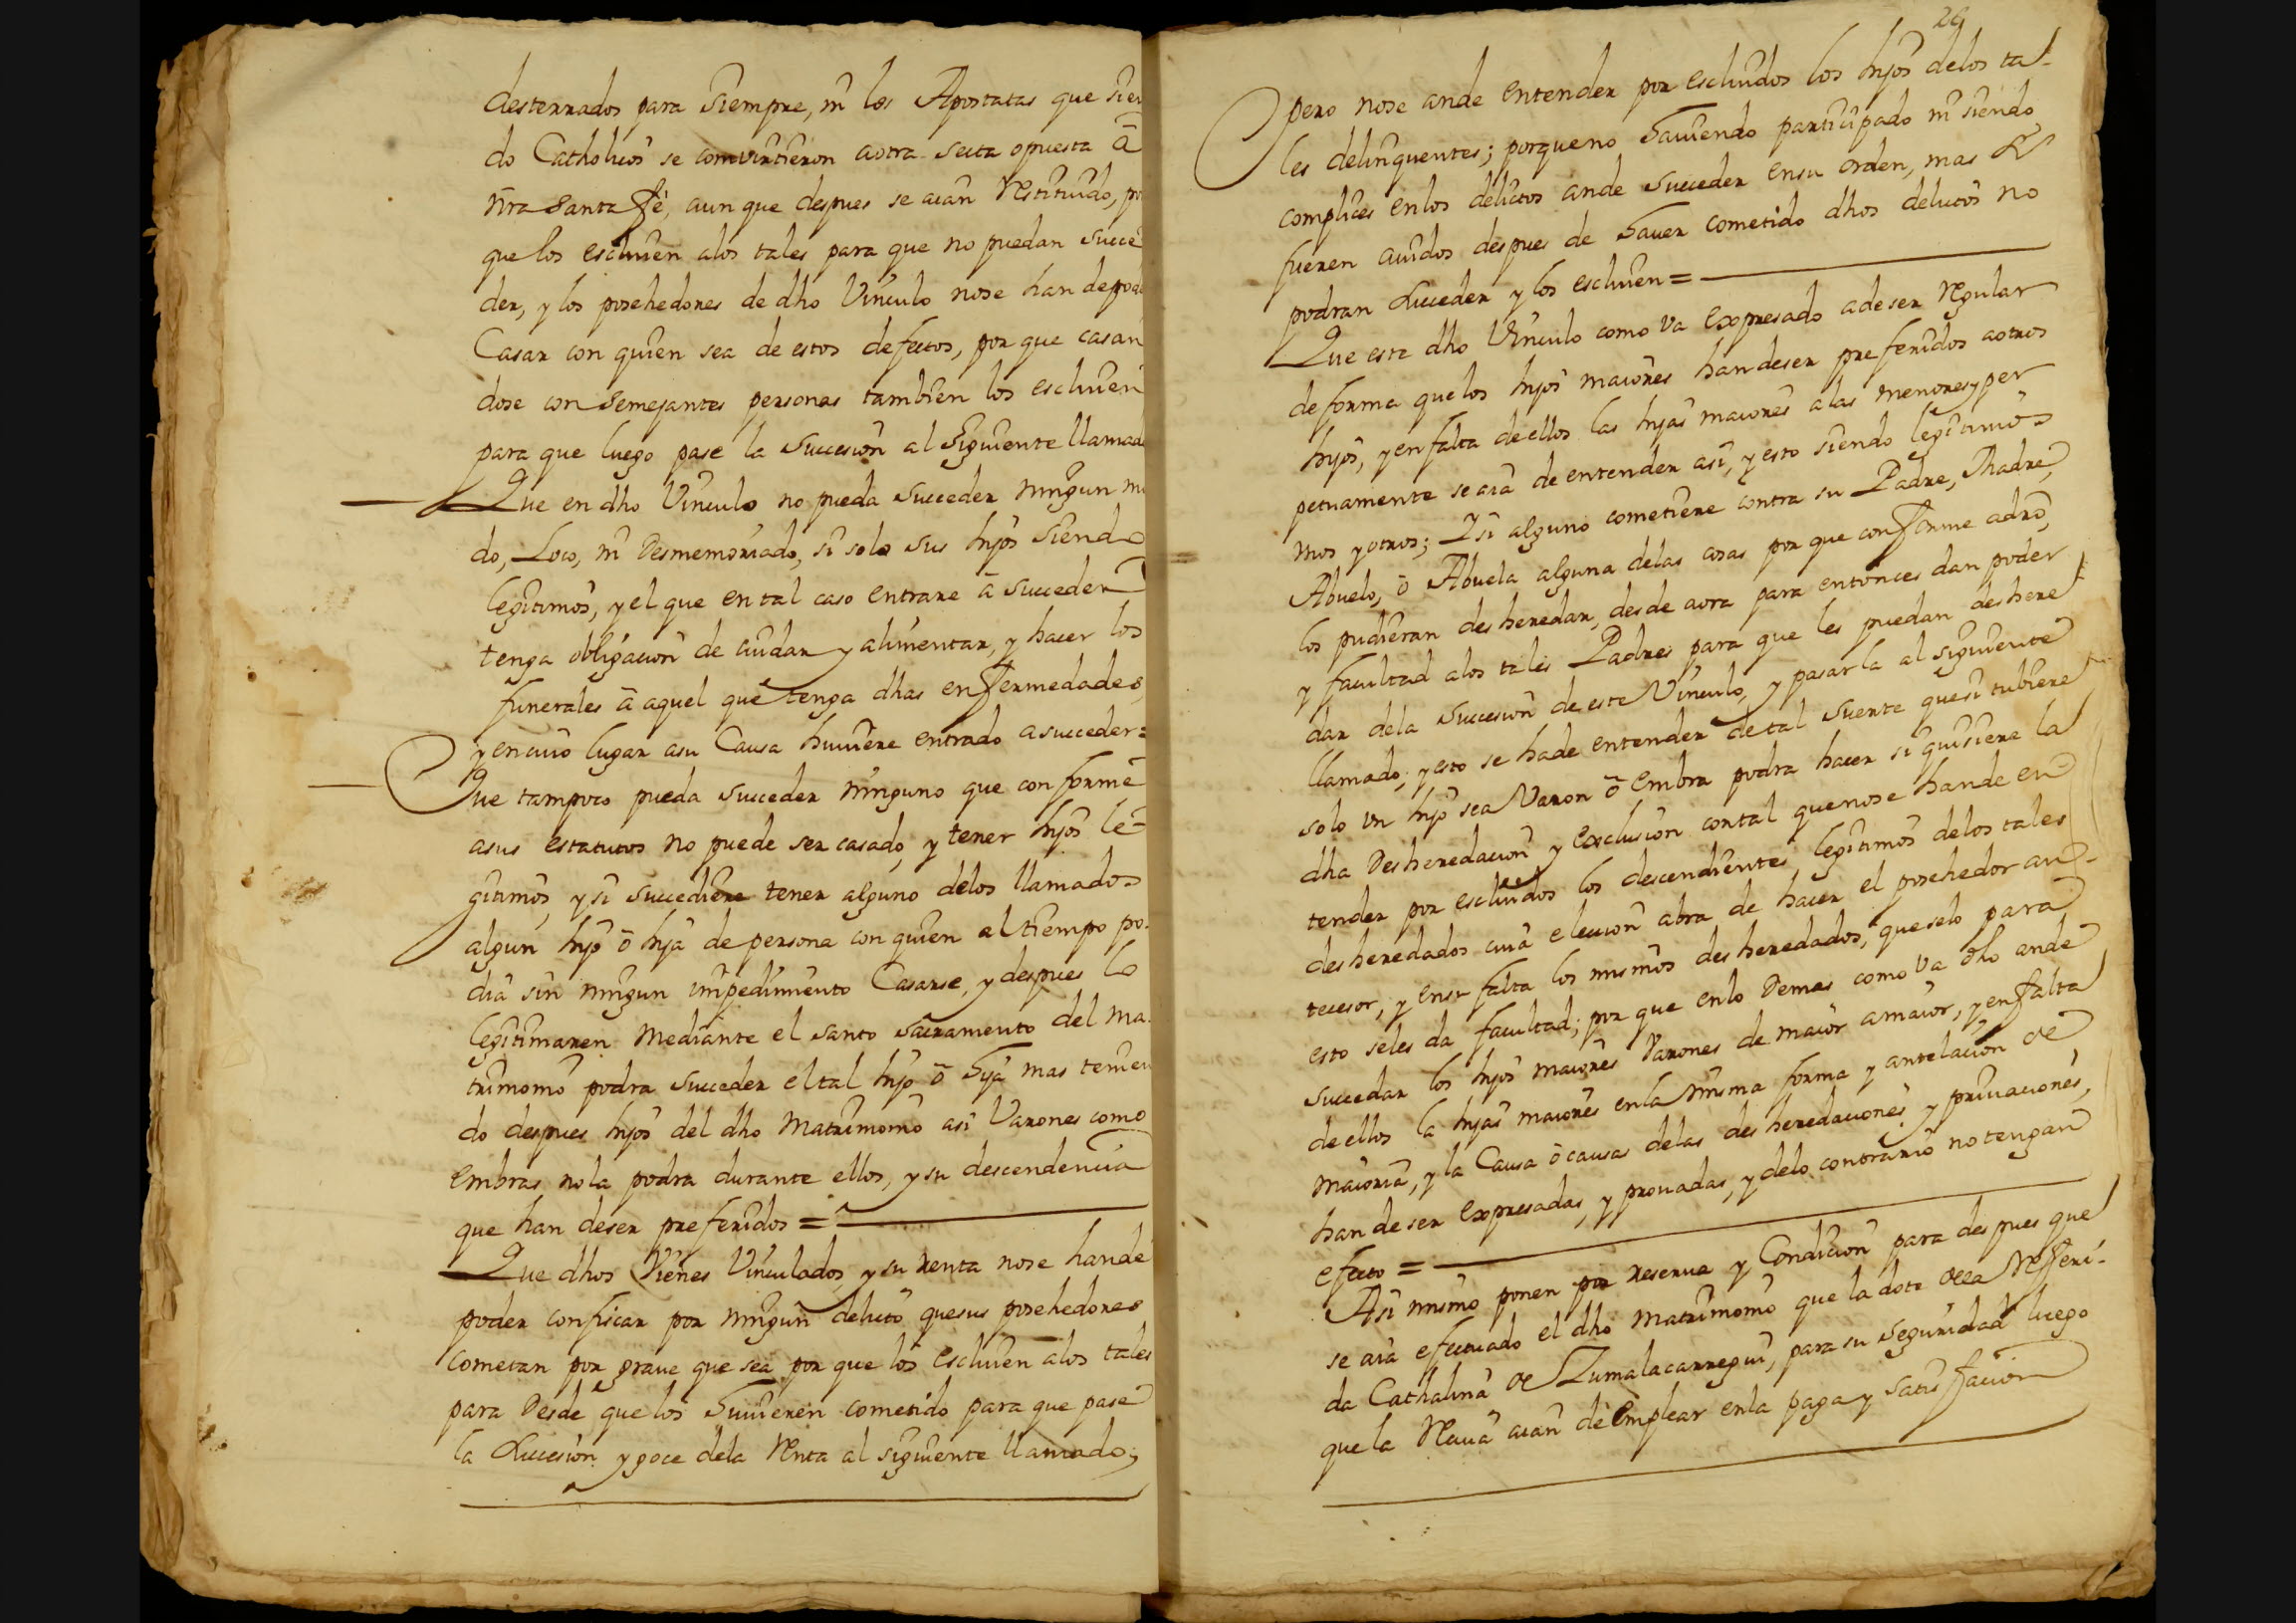 desterrados para Siempre, ni los Apostatas que sien
do Catholicos se comvirtieron aotra secta opuesta â
nr̃a Santa Fê, aun que despues se aian Restituido, por
que los escluien alos tales para que no puedan succe
der, y los posehedores de dho Vinculo nose han depod
Casar con quien sea de estos defectos, por que casan
dose con Semejantes personas tambien los escluien
para que luego pase la Succesion al Siguiente llamad
Que en dho Vinculo no pueda Succeder ningun mu
do, Loco, ni Desmemoriado, si solo sus hijos Siendo
legitimos, y el que en tal caso entrare â succeder
tenga obligacion de aiudar y alimentar, y hacer los
funerales â aquel que tenga dhas enfermedades,
y en cuio lugar asu Causa huuiere entrado asucceder=
Que tampoco pueda succeder ninguno que conforme
asus estatutos no puede ser casado, y tener hijos le-
gitimos, y si succediere tener alguno delos llamados
algun hijo ô hija de persona con quien al tiempo po-
dia sin ningun impedimiento Casarse, y despues lo
legitimaren Mediante el santo sacramento del ma-
trimonio podra succeder el tal hijo ô hija mas tenien
do despues hijos del dho Matrimonio asi Varones como
embras, no la podra durante ellos, y su descendencia
que han deser preferidos =
Que dhos Vienes Vinculados, y su renta nose hande
poder confiscar por ningun delicto quesus posehedores
cometan por graue que sea por que los escluien alos tales
para Desde que los huuieren cometido para que pase
la Succesion y goce dela Renta al siguiente llamado;
29
pero nose ande entender por escluidos los hijos delos ta-
les delinquentes; porqueno hauiendo participado ni siendo
complices enlos delictos ande succeder ensu orden, mas Si
fueren auidos despues de hauer cometido dhos delictos no
podran succeder y los escluien =
Que este dho Vinculo como va expresado adeser Regular
de forma que los hijos maiores han deser preferidos aotros
hijos, y en falta de ellos las hijas maiores alas menores y per
petuamente se aia de entender asi, y esto siendo legitimos
unos y otros; Y si alguno cometiere contra su Padre, Madre,
Abuelo, ô Abuela alguna delas cosas por que conforme adrõ,
los pudieran desheredar, desde aora para entonces dan poder
y facultad alos tales Padres para que les puedan deshere
dar dela Succesion de este Vinculo, y pasarla al siguiente
llamado; y esto se hade entender de tal suerte quesi tubiere
solo un hijo sea Varon ô embra podra hacer si quisiere la
dha Desheredacion y exclusion contal quenose hande en-
tender por escluidos los descendientes legitimos delos tales
desheredados cuia eleccion abra de hacer el posehedor an-
tecesor, y ensu falta los mismos desheredados, queselo para
esto seles da facultad; por que enlo Demas como va dho ande
succedar los hijos maiores Varones de maior amaior, y en falta
de ellos la hijas maiores enla misma forma y antelacion de
maioria, y la Causa ô causas delas desheredaciones y priuaciones,
han deser expresadas, y prouadas, y delo contrario no tengan
efecto =
Asi mismo ponen por reserua y Condicion para despues que
se aia efectuado el dho matrimonio que la dote dela Referi-
da Cathalina de Zumalacarregui, para su seguridad luego
que la Reciua aian de emplear enla paga y satisfacion